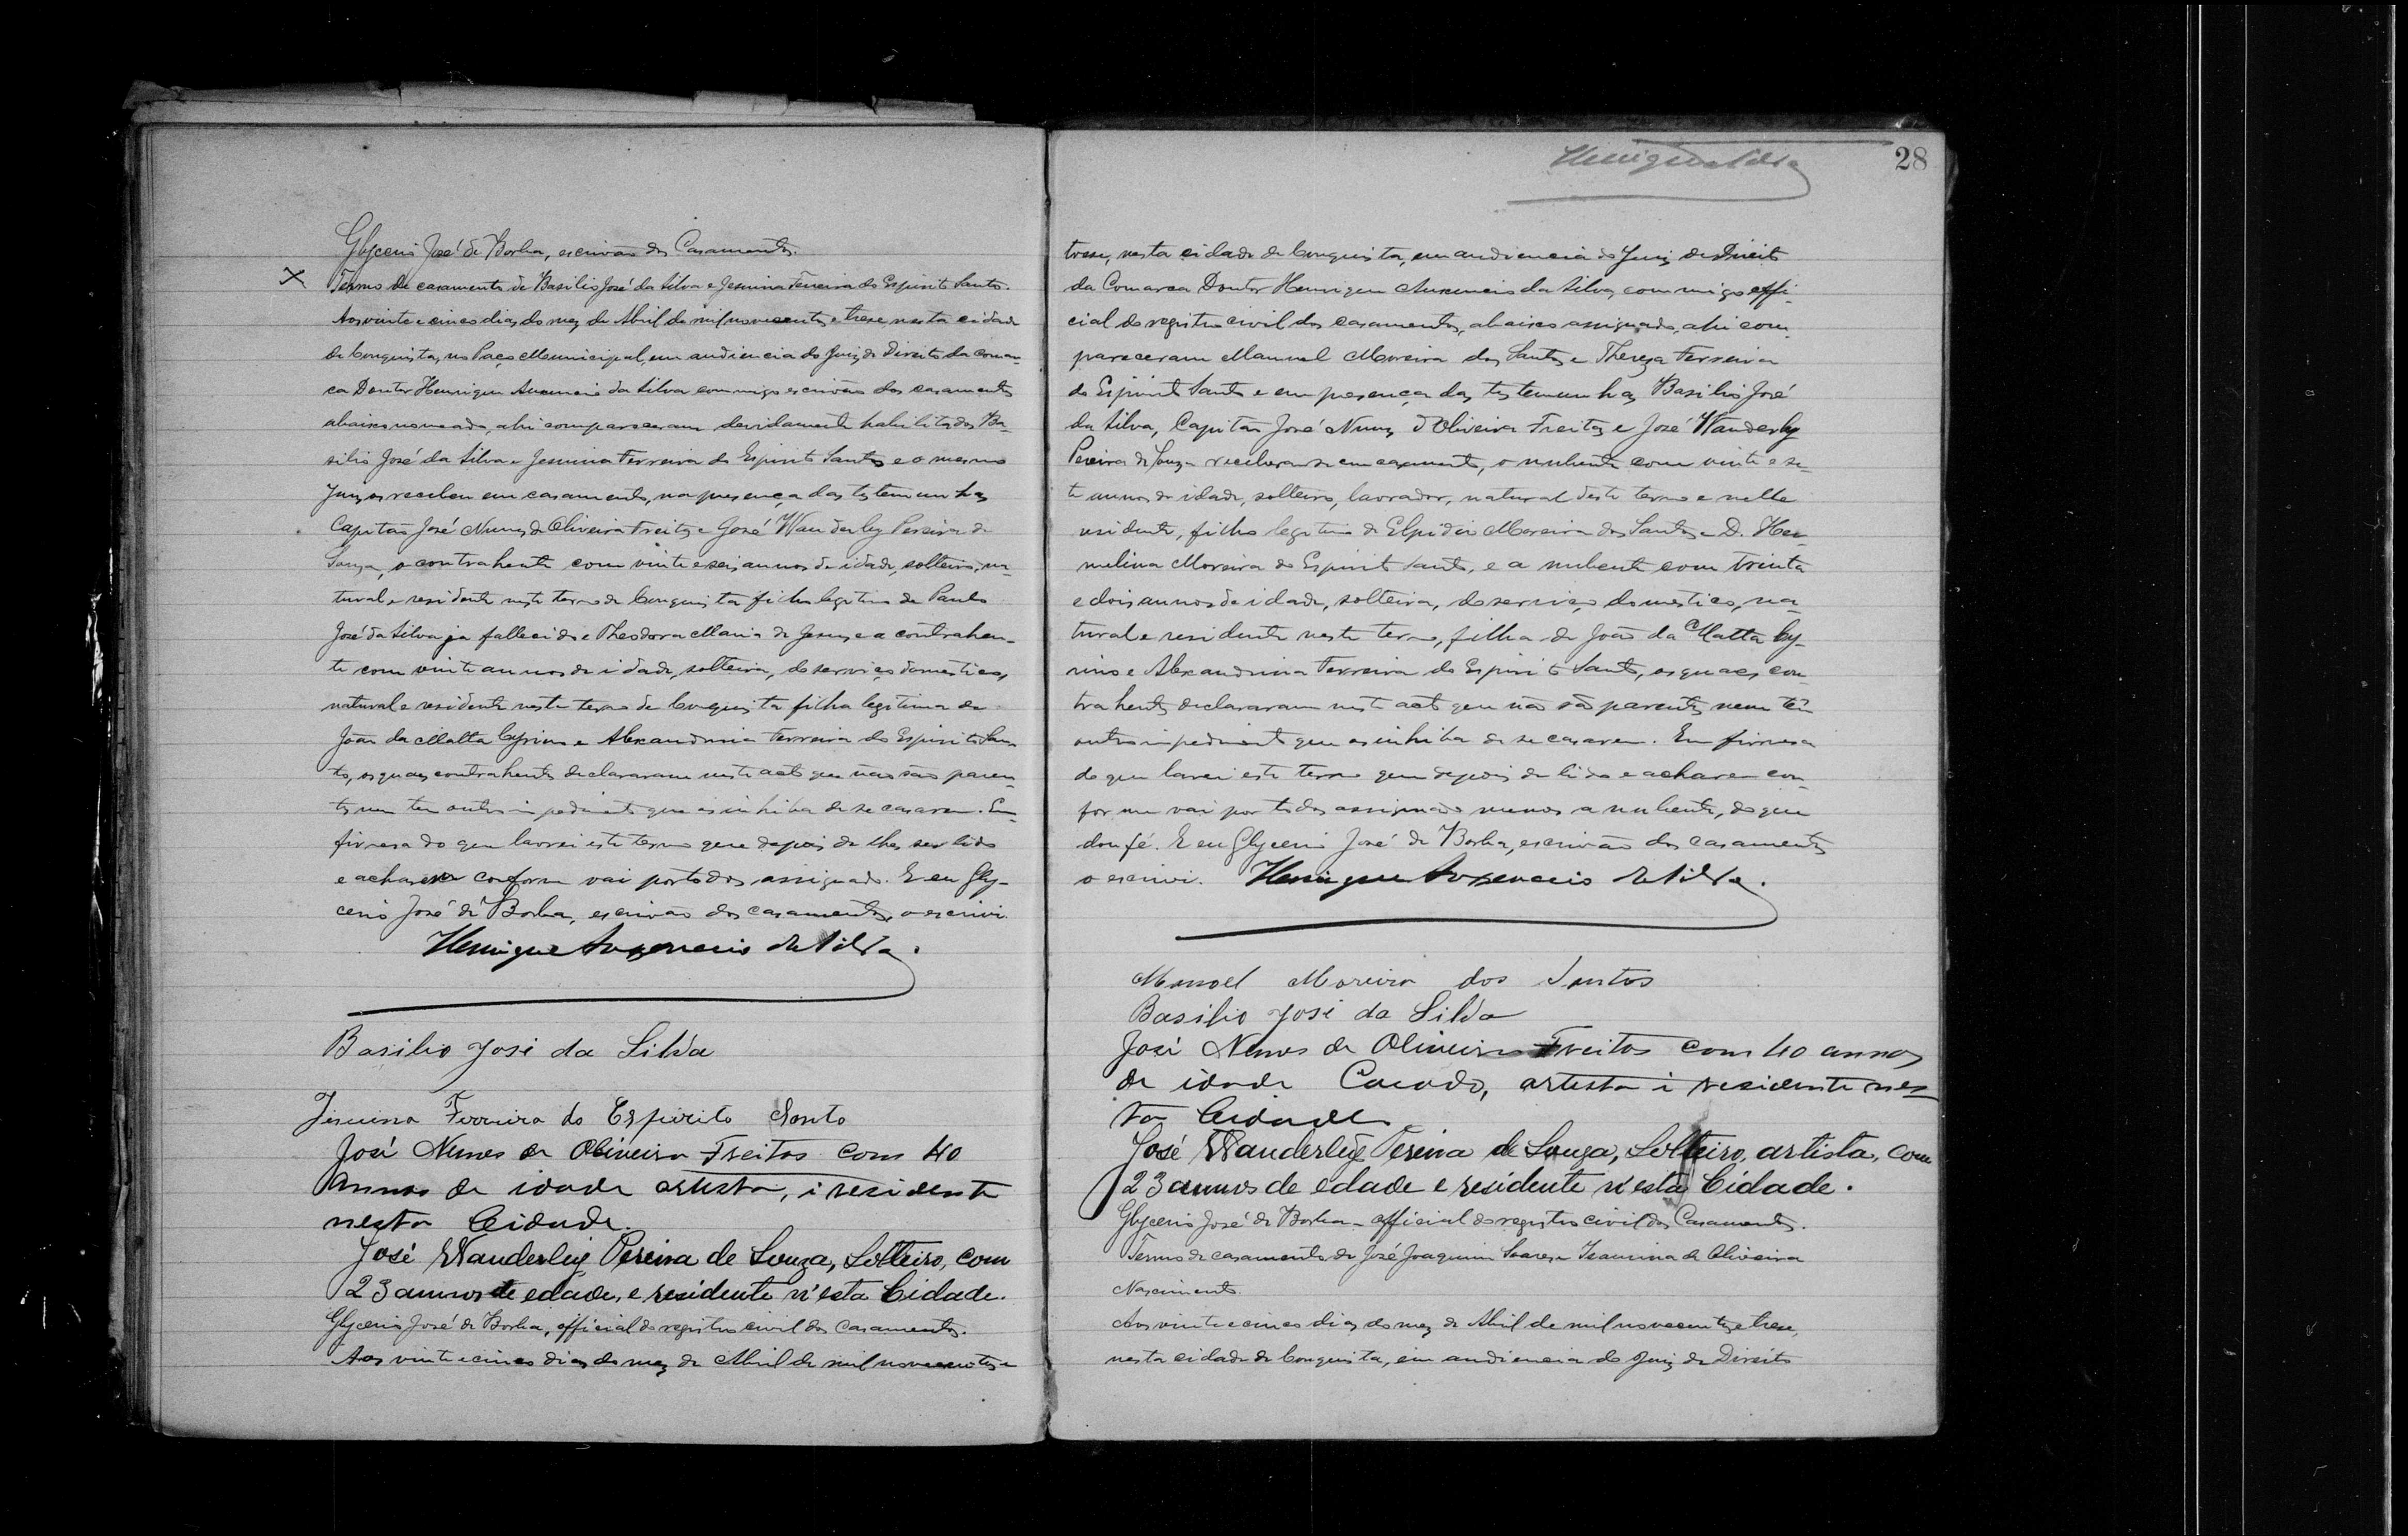 Glycerio José de Borba, escrivão dos Casamentos.
Termo de casamento de Basilio José da Silva e Jesuina Ferreira do Espirito Santo.
Aos vinte e cinco dias do mez de Abril de mil novecentos e treze nesta cidade
de Conquista, no Paço Municipal, em audiencia do Juiz de Direito da comar-
ca Doutor Henrique Auxencio da Silva commigo escrivão dos casamentos
abaixo nomeado, ahi compareceram devidamente habilitados Ba-
silio José da Silva e Jesuina Ferreira do Espirito Santo e o mesmo
Juiz os recebeu em casamento, na presença das testemunhas
Capitão José Nunes de Oliveira Freitas e José Wanderley Pereira de
Souza, o contrahente com vinte e seis annos de idade, solteiro, na-
tural e residente neste termo de Conquista filho legitimo de Paulo
José da Silva ja fallecido e Theodora Maria de Jesus, e a contrahen-
te com vinte annos de idade, solteira, do serviço domestico,
natural e residente neste termo de Conquista filha legitima de
João da Matta Cyrino e Alexandrina Ferreira do Espirito San-
to, os quaes contrahentes declararam neste acto que não são paren-
tes nem tem outro impedimento que os inhiba de se casarem. Em
firmesa do que lavrei este termo que depois de lhes ser lido
e acharem conforme vai por todos assignado. E eu Gly-
cerio José de Borba, escrivão dos casamentos, o escrivi.
Henrique Auxencio da Silva.
Basilio José da Silva
Jesuina Ferreira do Espirito Santo
José Nunes de Oliveira Freitas com 40
annos de idade artista, i residente
nesta Cidade.
José Wanderley Pereira de Souza, Solteiro, com
23 annos de edade, e residente n'esta Cidade.
Glycerio José de Borba, official do registro civil dos Casamentos.
Aos vinte e cinco dias do mez de Abril de mil novecentos e
Henrique Silva
28
treze, nesta cidade de Conquista, em audiencia do Juiz de Direito
da Comarca Doutor Henrique Auxencio da Silva, commigo offi-
cial do registro civil dos casamentos, abaixo assignado, ahi com-
pareceram Manuel Moreira dos Santos e Thereza Ferreira
do Espirito Santo e em presença das testemunhas Basilio José
da Silva, Capitão José Nunes d'Oliveira Freitas e José Wanderley
Pereira de Souza receberam-se em casamento, o nubente com vinte e se-
te annos de idade, solteiro, lavrador, natural deste termo e nelle
residente, filho legitimo de Elpidio Moreira dos Santos e D. Her-
mulina Moreira do Espirito Santo, e a nubente com trinta
e dois annos de idade, solteira, do serviço domestico, na-
tural e residente neste termo, filha de João da Matta Cy-
rino e Alexandrina Ferreira do Espirito Santo, os quaes con-
trahentes declararam neste acto que não são parentes nem têm
outro impedimento que os inhiba de se casarem. Em firmesa
do que lavrei este termo que depois de lido e acharem con-
forme vai por todos assignado menos a nubente, do que
dou fé. E eu Glycerio José de Borba, escrivão dos casamentos
o escrivi. Henrique Auxencio da Silva.
Manoel Moreira dos Santos
Basilio José da Silva
José Nunes de Oliveira Freitas com 40 annos
de idade Cazado, artista i residente nes-
ta Cidade
José Wanderley Pereira de Souza, Solteiro, artista, com
23 annos de edade e residente n'esta Cidade.
Glycerio José de Borba - official do registro civil dos Casamentos.
Termo de casamento de José Joaquim Soares e Isaurina de Oliveira
Nascimento.
Aos vinte e cinco dias do mez de Abril de mil novecentos e treze,
nesta cidade de Conquista, em audiencia do Juiz de Direito